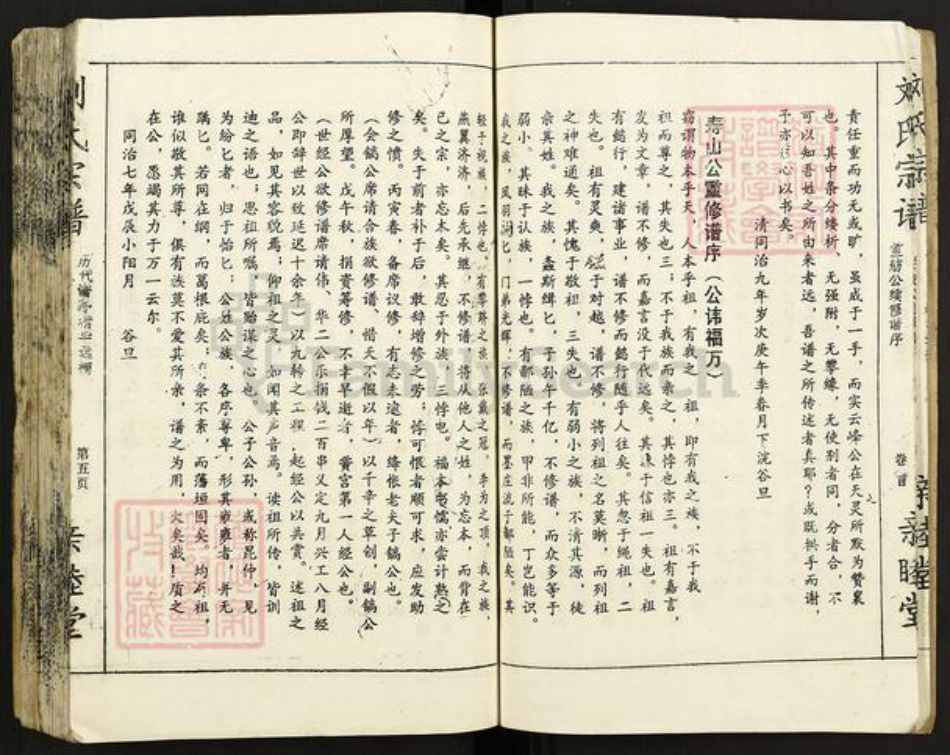 刘氏宗谱
卷首
亲睦堂
责任重而功无或旷，虽成于一手，而实云峰公在天灵所默为赞襄
也。其中条分缕析，无强附，无攀缘，无使别者同，分者合，不
可以知吾姓之所由来者远，吾谱之所传述者真耶？或既拱手而谢，
予亦心以书矣。
清同治九年岁次庚午季春月下浣谷旦
寿山公重修谱序（公讳福万）
窃谓物本乎天，人本乎祖，有我之祖，即有我之族，不于我
祖而尊之，其失也三；不于我族而亲之，其悖也亦三。祖有嘉言，
发为文章，谱不修，而嘉言没于代远矣。其于信祖一失也。祖
有懿行，建诸事业，谱不修而懿行随乎人往矣。其忽于绳祖，二
失也。祖有灵爽，于对越，谱不修，将列祖之名莫晰，而列祖
之神难通矣。其愧于敬祖，三失也。有弱小之族，不清其源，徒
余其姓。我之族，螽斯缉匕，子孙千亿，不修谱，而众多等于
弱小。其昧于认族，一悖也。有鄙陋之族，甲非所能，丁岂能识。
我之族，门弟光辉，不修谱，而墨庄流于鄙陋矣。其
轻于视族，二悖也。有零畸之族，张戴之冠，李为之顶，我之族，
燕翼济济，后先承继，不修谱，将从他人之姓，为忘本，而背在
己之宗，亦忘木矣。其忍于外族，三悖也。福本懦亦尝计熟之
矣。失于前者补于后，敢辞增修之劳；悖可恨者顺可求，应发助
修之愤。丙寅春，备席议修，有志未遂者，缘怅老夫子镐公也。
（会镐公席请合族欲修谱，惜天不假以年）以千辛之草创，副镐公
所厚望。戊午秋，捐资筹修，不幸早逝者，黉宫第一人经公也。
（世经公欲修谱席请伟、华二公示捐钱二百串义定九月兴工八月经
公即辞世以致延迟十余年）以九转之工程，起经公以共赏。述祖之
品，如见其容貌焉；仰祖之灵，如闻其声音焉。读祖所传，皆训
迪之语也；思祖所嘱，皆贻谋之心也。公子公孙，或称昆仲，见
为纷匕者，归于怡匕；公姓公族，各序尊卑，形其雍雍者，并无
踽匕。若网在纲，而葛根庇矣；条不紊，而藩垣固矣。均为祖，
谁似敬其所尊，俱有族莫不爱其所亲，谱之为用，大矣哉！质之
在公，愿竭其力于万一云尔。
同治七年戊辰小阳月 谷旦
刘氏宗谱
第五页
亲睦堂